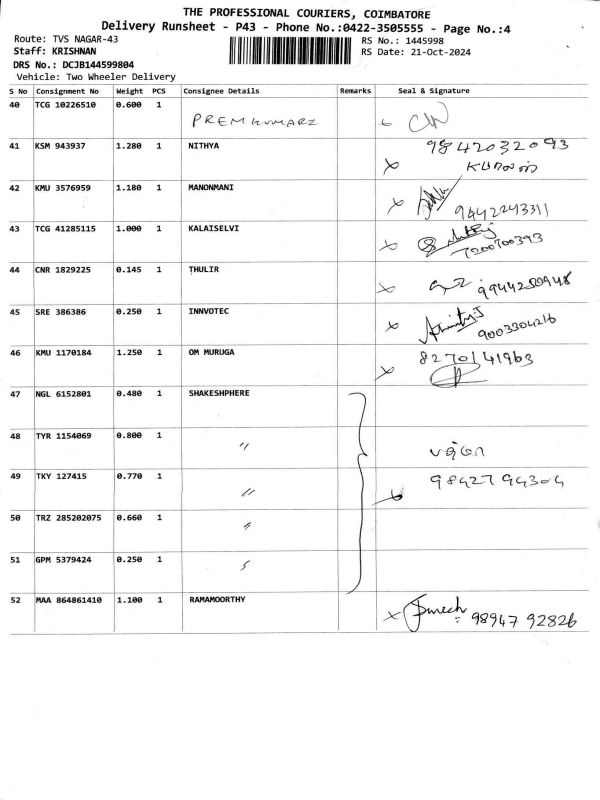 THE PROFESSIONAL COURIERS, COIMBATORE
Delivery Runsheet - P43 - Phone No.:0422-3505555 - Page No.:4
Route: TVS NAGAR-43 RS No.: 1445998
Staff: KRISHNAN RS Date: 21-Oct-2024
DRS No.: DCJB144599804
Vehicle: Two Wheeler Delivery
S No Consignment No Weight PCS Consignee Details Remarks Seal & Signature
40 TCG 10226510 0.600 1
PREM KUMARZ
41 KSM 943937 1.280 1 NITHYA 9842032093
42 KMU 3576959 1.180 1 MANONMANI
9442243311
43 TCG 41285115 1.000 1 KALAISELVI
7200700393
44 CNR 1829225 0.145 1 THULIR
9944250948
45 SRE 386386 0.250 1 INNVOTEC
9003304216
46 KMU 1170184 1.250 1 OM MURUGA 8270141963
47 NGL 6152801 0.480 1 SHAKESHPHERE
48 TYR 1154069 0.800 1
〃
49 TKY 127415 0.770 1 9842794304
〃
50 TRZ 285202075 0.660 1
〃
51 GPM 5379424 0.250 1
52 MAA 864861410 1.100 1 RAMAMOORTHY
Suresh 98947 92826